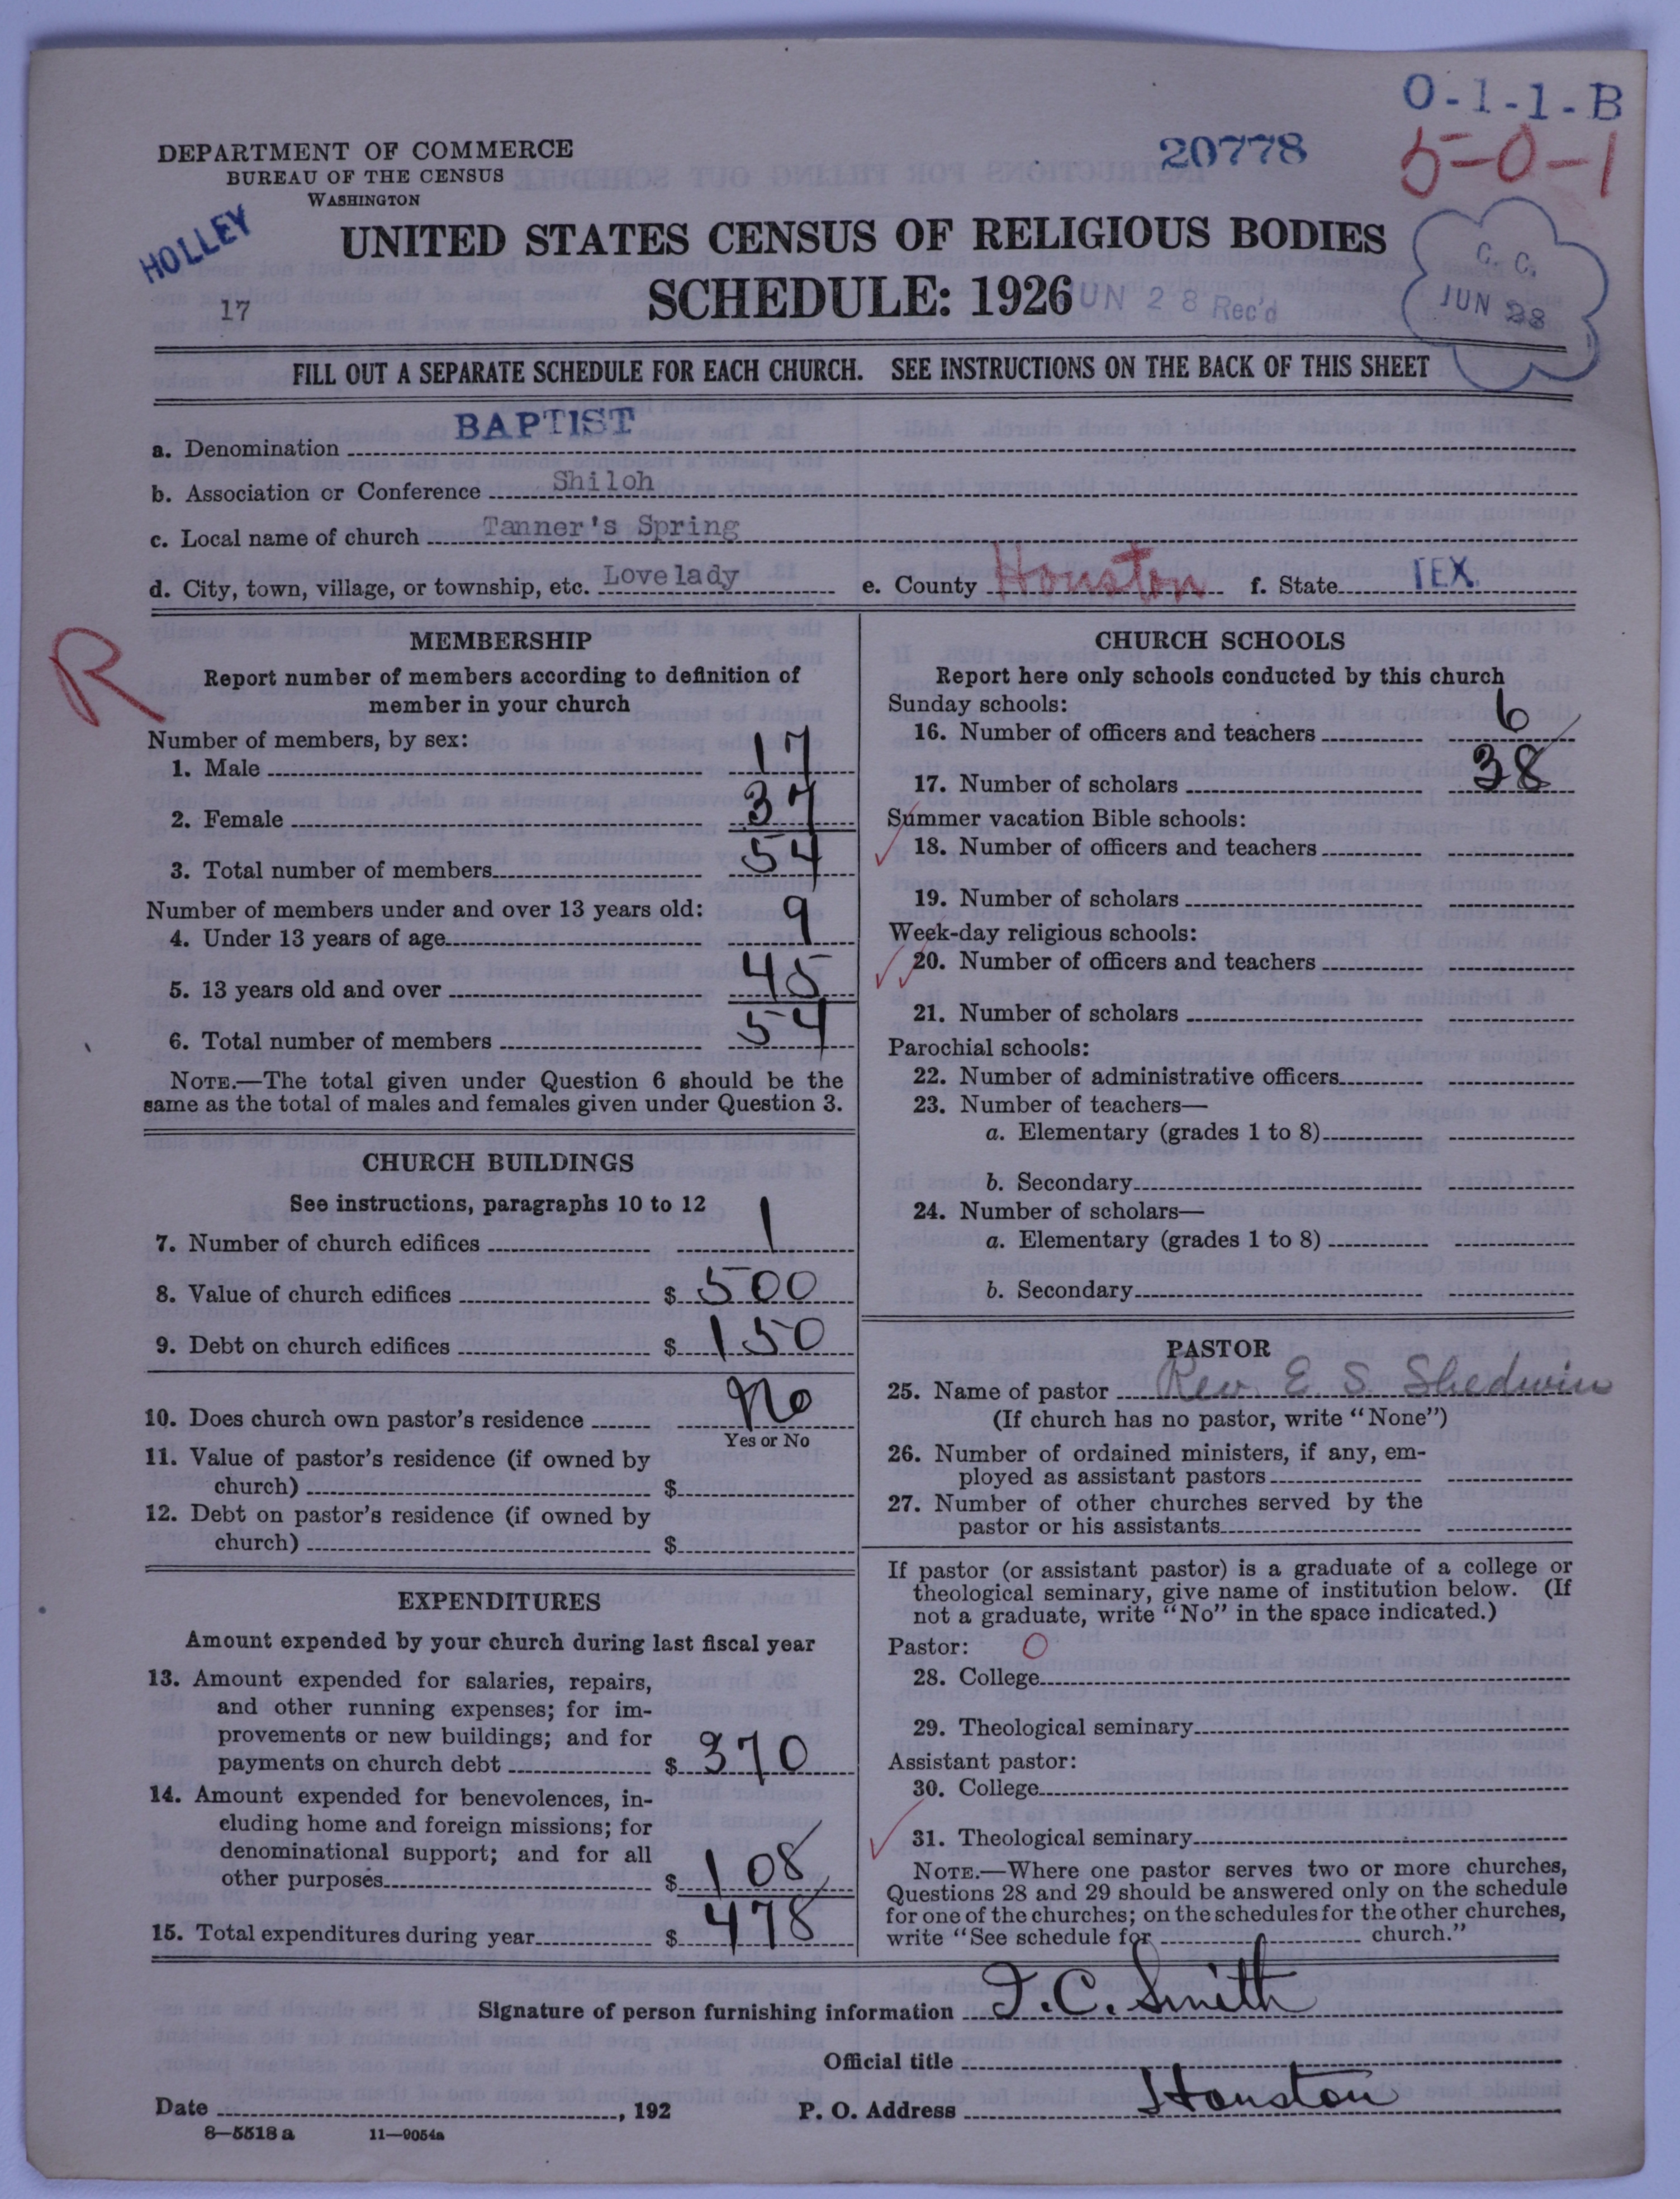 O-1-1-B
DEPARTMENT OF COMMERCE
BUREAU OF THE CENSUS
WASHINGTON
20778
5-0-1
HOLLEY
UNITED STATES CENSUS OF RELIGIOUS BODIES
17
SCHEDULE: 1926
JUN 28 Rec'd
C. C.
JUN 28
FILL OUT A SEPARATE SCHEDULE FOR EACH CHURCH. SEE INSTRUCTIONS ON THE BACK OF THIS SHEET
a. Denomination BAPTIST
b. Association or Conference Shiloh
c. Local name of church Tanner's Spring
d. City, town, village, or township, etc. Lovelady e. County Houston f. State TEX.
R
MEMBERSHIP
Report number of members according to definition of
member in your church
Number of members, by sex:
1. Male 17
2. Female 37
3. Total number of members 54
Number of members under and over 13 years old:
4. Under 13 years of age 9
5. 13 years old and over 45
6. Total number of members 54
NOTE.—The total given under Question 6 should be the
same as the total of males and females given under Question 3.
CHURCH BUILDINGS
See instructions, paragraphs 10 to 12
7. Number of church edifices 1
8. Value of church edifices $ 500
9. Debt on church edifices $ 150
10. Does church own pastor's residence No
Yes or No
11. Value of pastor's residence (if owned by
church) $
12. Debt on pastor's residence (if owned by
church) $
EXPENDITURES
Amount expended by your church during last fiscal year
13. Amount expended for salaries, repairs,
and other running expenses; for im-
provements or new buildings; and for
payments on church debt $ 370
14. Amount expended for benevolences, in-
cluding home and foreign missions; for
denominational support; and for all
other purposes $ 108
15. Total expenditures during year $ 478
CHURCH SCHOOLS
Report here only schools conducted by this church
Sunday schools:
16. Number of officers and teachers 6
17. Number of scholars 38
Summer vacation Bible schools:
18. Number of officers and teachers
19. Number of scholars
Week-day religious schools:
20. Number of officers and teachers
21. Number of scholars
Parochial schools:
22. Number of administrative officers
23. Number of teachers—
a. Elementary (grades 1 to 8)
b. Secondary
24. Number of scholars—
a. Elementary (grades 1 to 8)
b. Secondary
PASTOR
25. Name of pastor Rev. E S. Shedwin
(If church has no pastor, write "None")
26. Number of ordained ministers, if any, em-
ployed as assistant pastors
27. Number of other churches served by the
pastor or his assistants
If pastor (or assistant pastor) is a graduate of a college or
theological seminary, give name of institution below. (If
not a graduate, write "No" in the space indicated.)
Pastor: O
28. College
29. Theological seminary
Assistant pastor:
30. College
31. Theological seminary
NOTE.—Where one pastor serves two or more churches,
Questions 28 and 29 should be answered only on the schedule
for one of the churches; on the schedules for the other churches,
write "See schedule for church."
Signature of person furnishing information J. C. Smith
Official title
Date , 192 P. O. Address Houston
8—5518 a 11—9054a